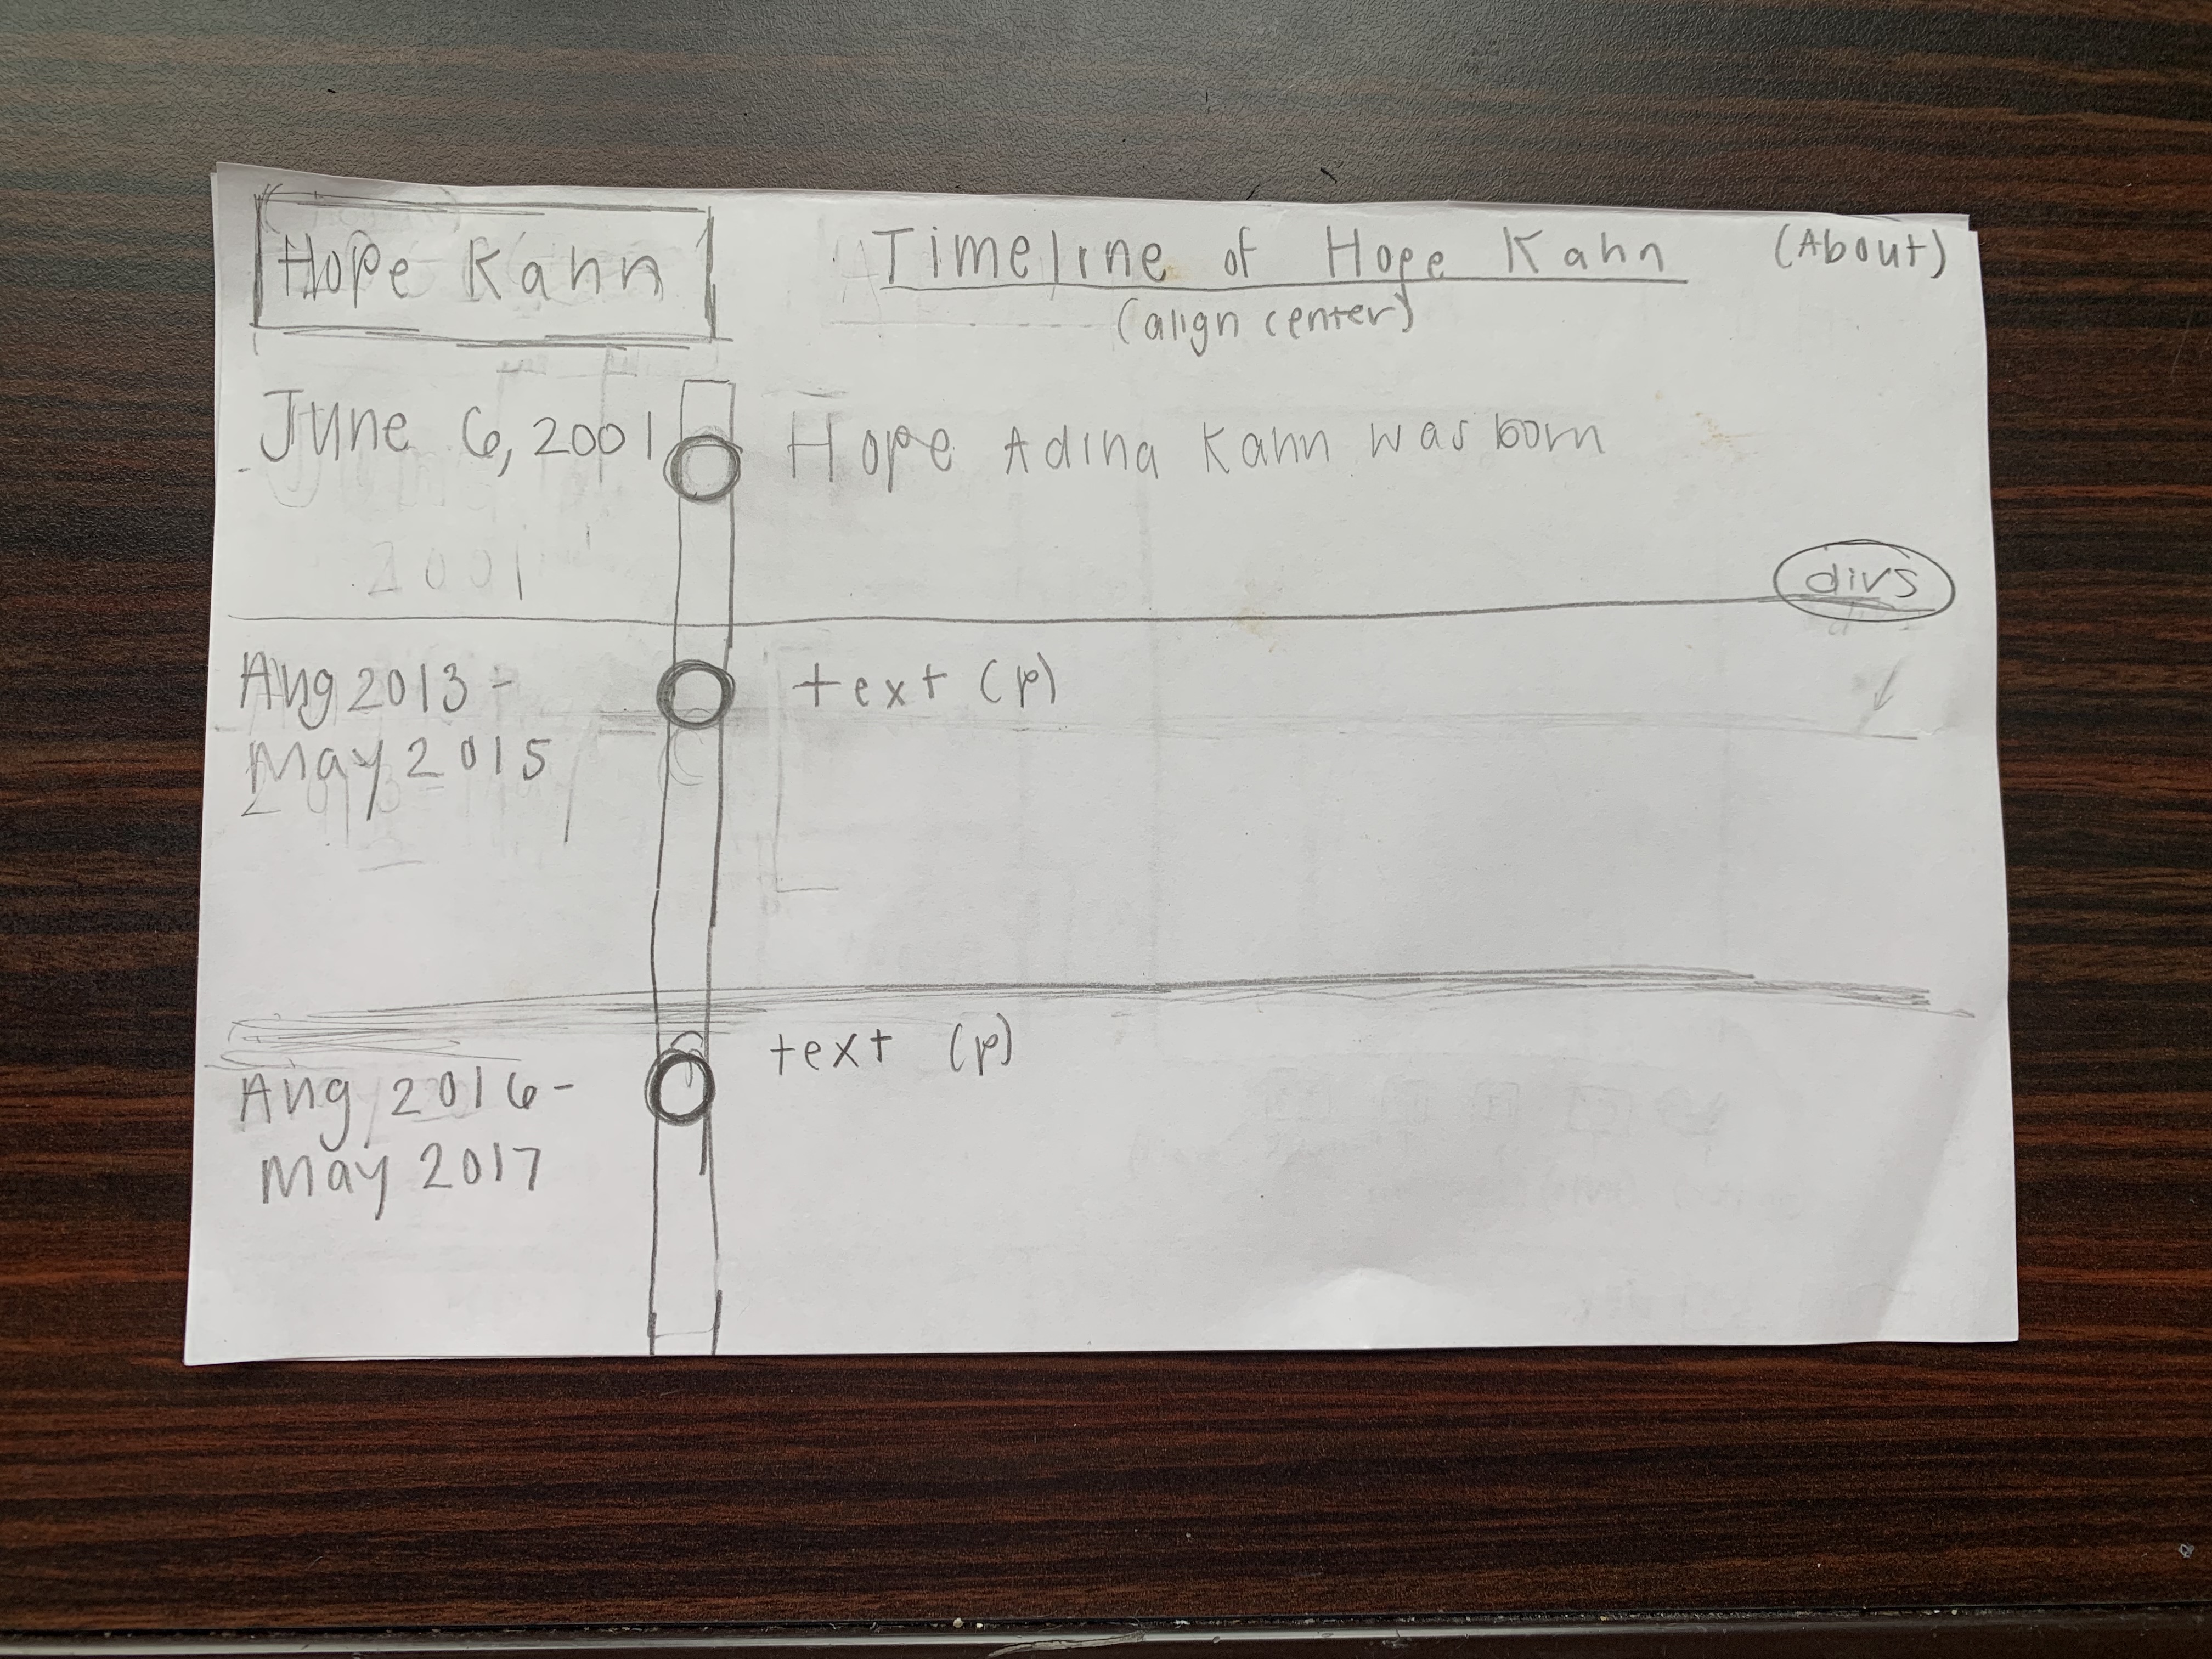 Hope Kahn
Timeline of Hope Kahn
(About)
(align center)
June 6, 2001
Hope Adina Kahn was born
2001
divs
Aug 2013 -
May 2015
text (p)
Aug 2016 -
May 2017
text (p)